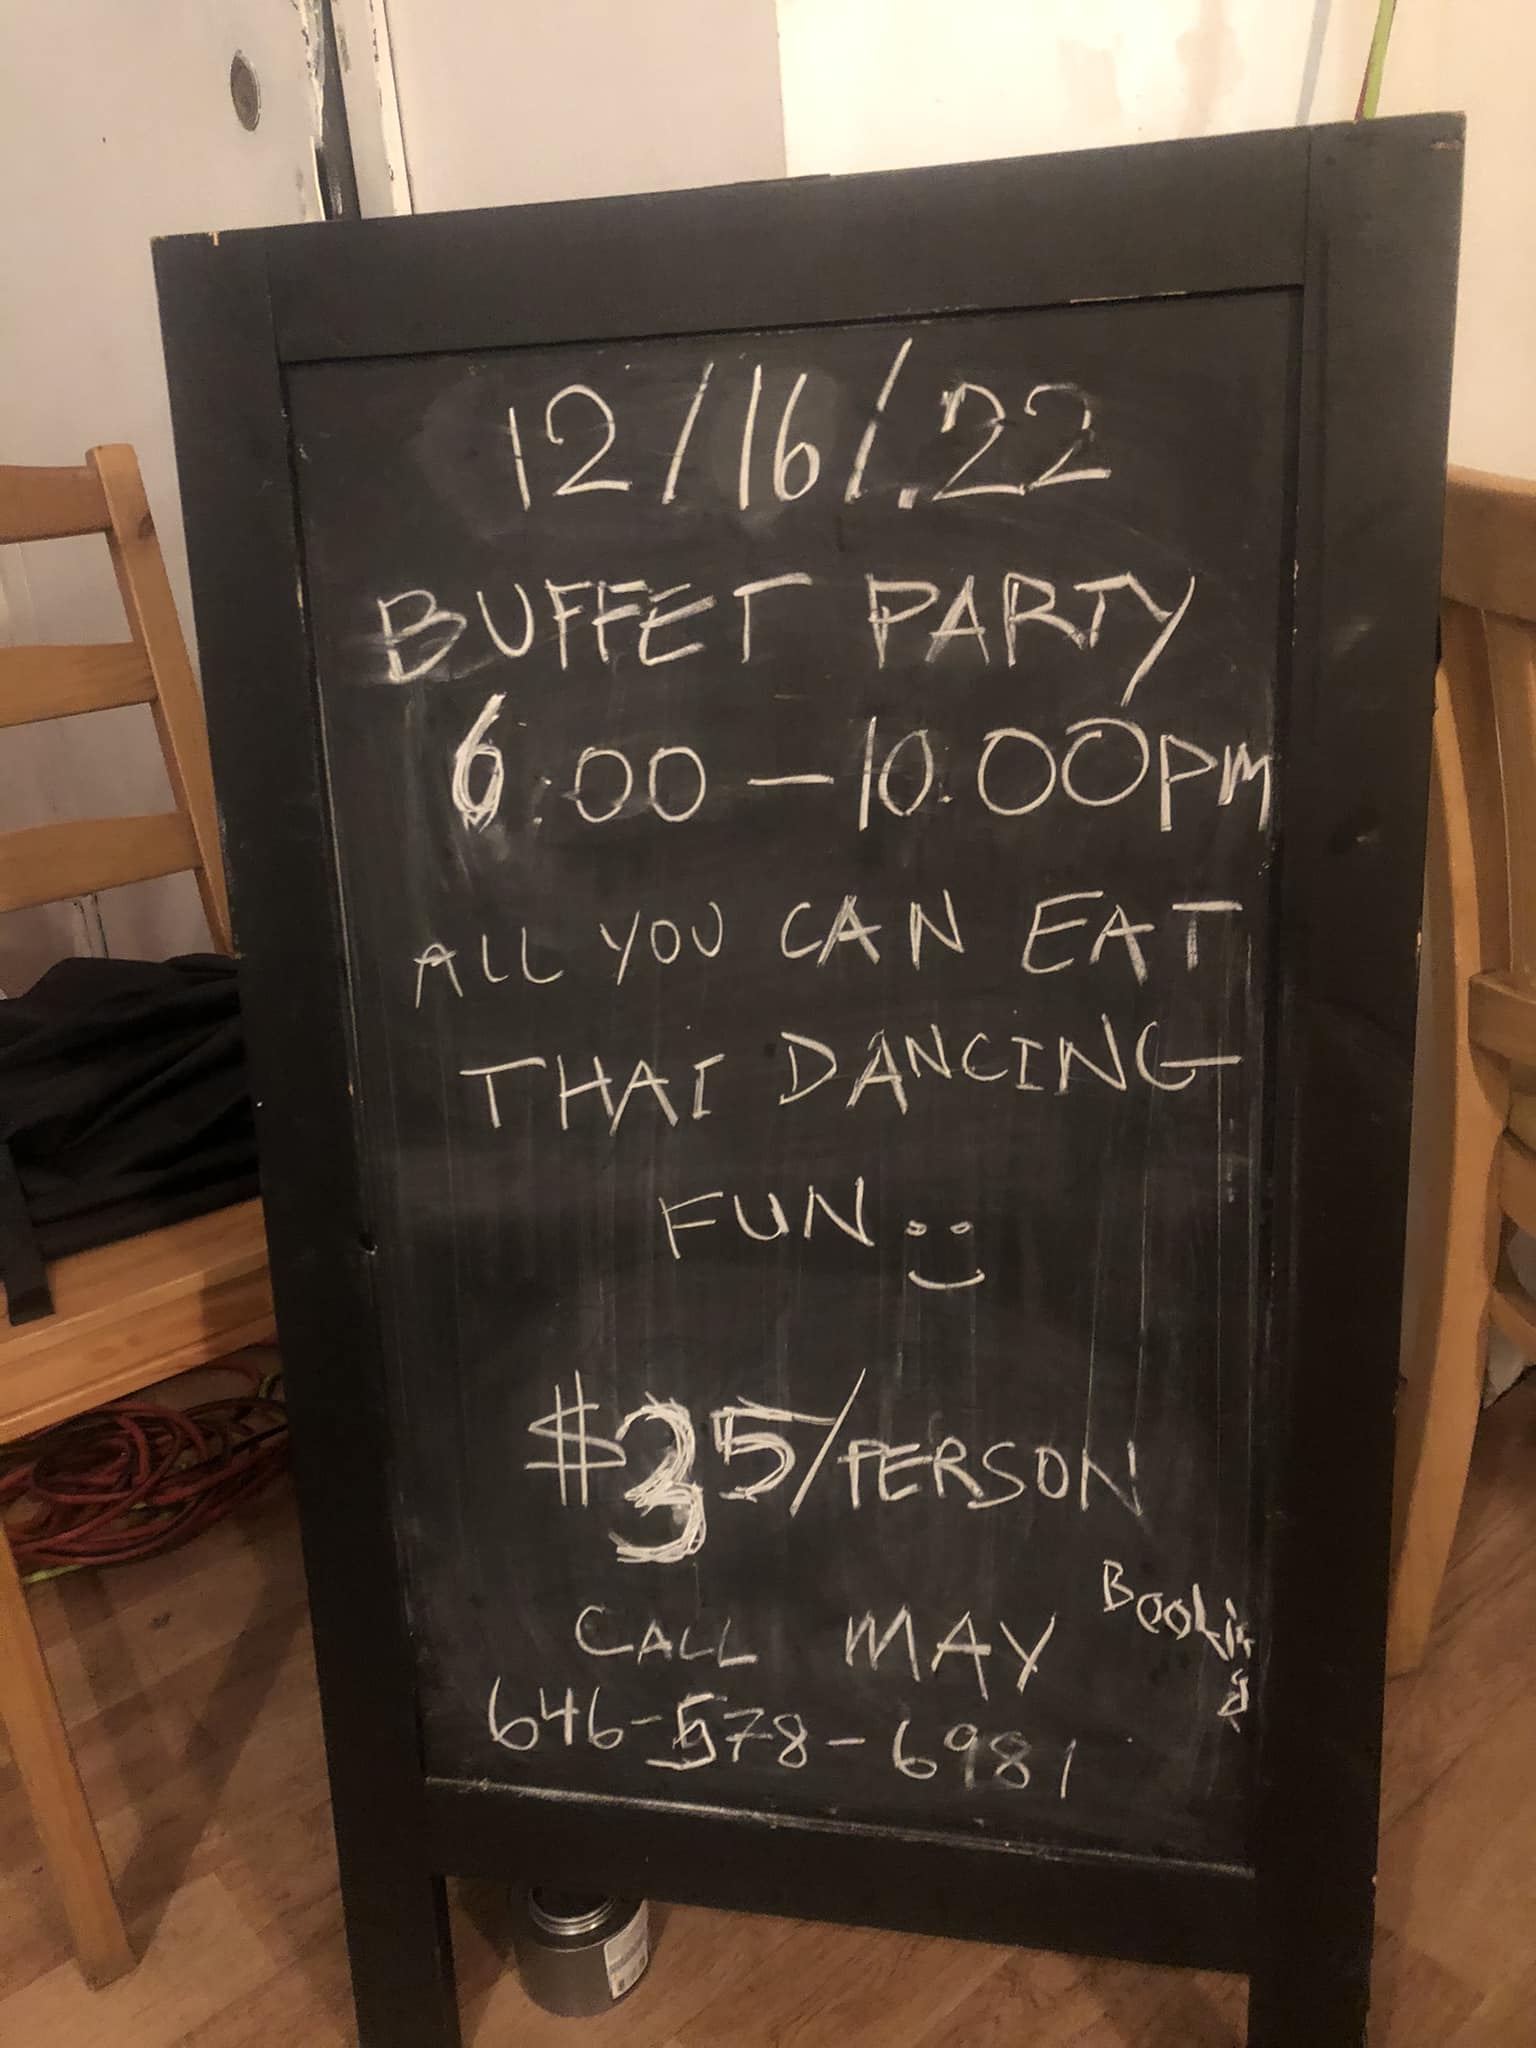 12/16/.22
BUFFET PARTY
6:00 - 10.00PM
ALL YOU CAN EAT
THAI DANCING
FUN
$35/PERSON
CALL MAY Booking
646-578-6981